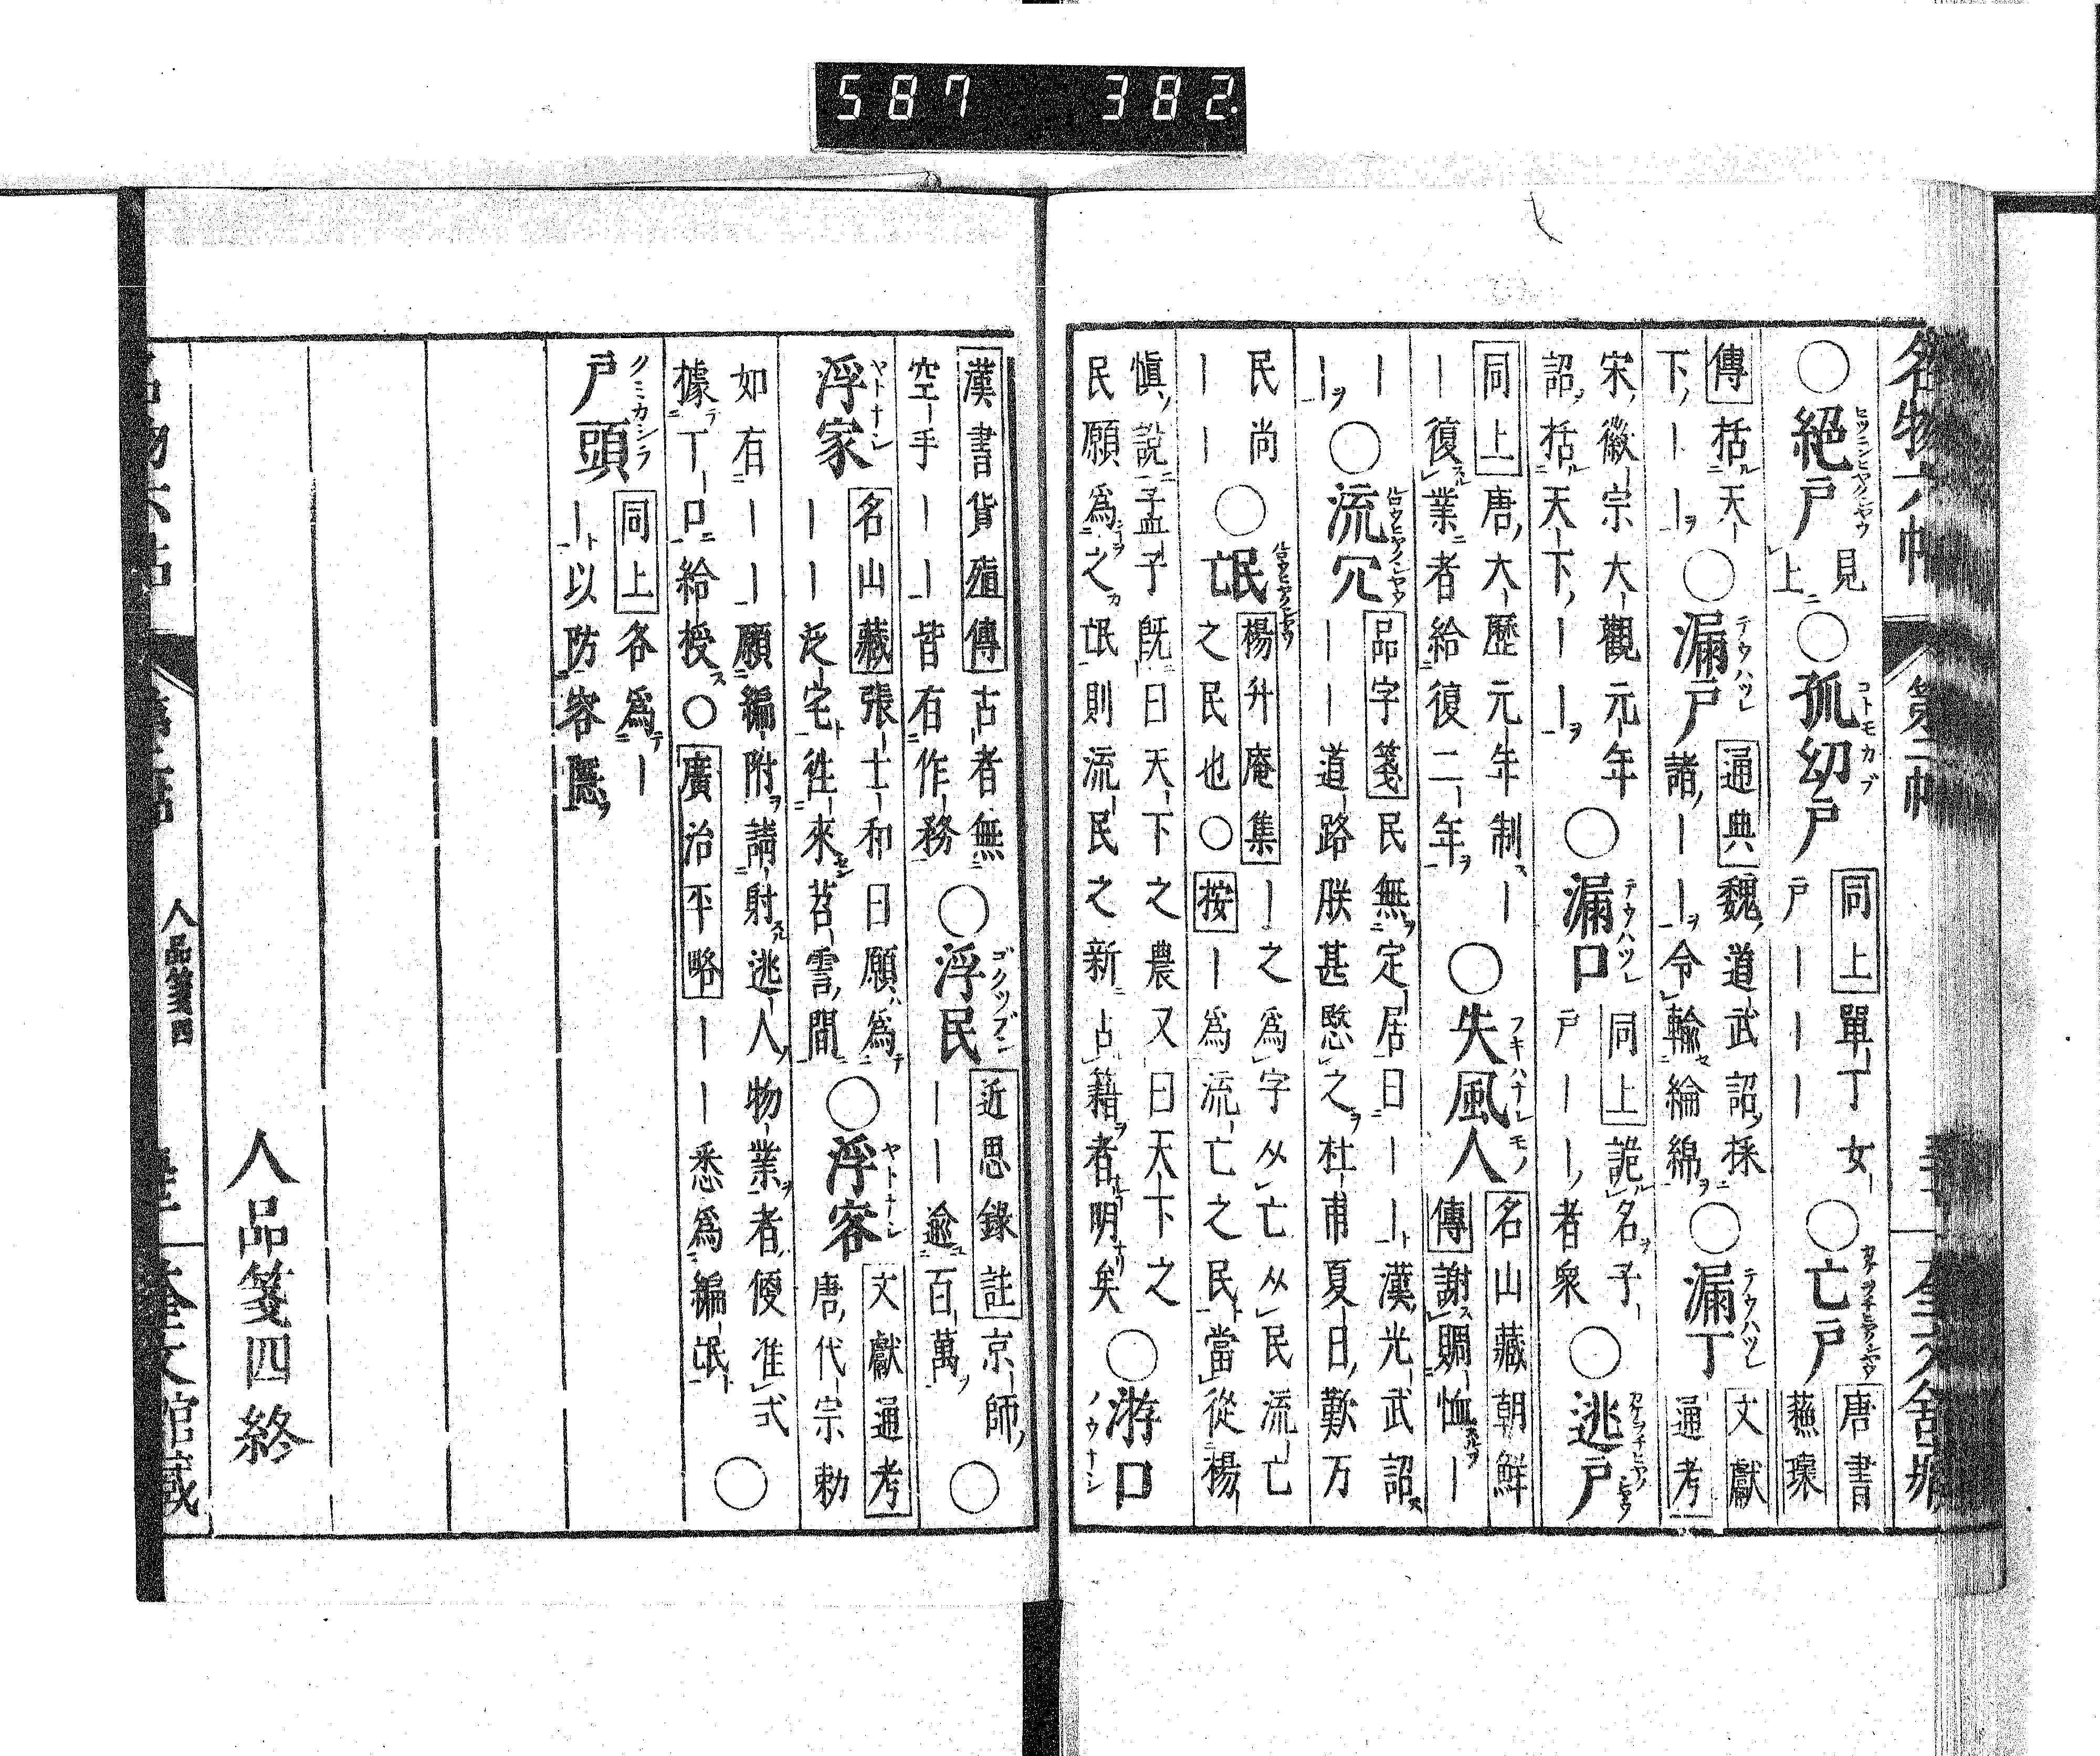 587 382
名物六帖 第二帖
○絕戸 見上 ○孤幼戸 同上 單丁女戸｜｜｜ ○亡戸 唐書蘇瓌
傳 括天下｜｜ ○漏戸 通典 魏道武詔採諸｜｜令輸綸綿 ○漏丁 文獻通考
宋徽宗大觀元年詔括天下｜｜ ○漏口 同上 詭名子戸｜｜者衆 ○逃戸
同上 唐大歷元年制｜｜復業者給復二年 ○失風人 名山藏朝鮮傳 謝賜恤｜
｜｜ ○流冗 品字箋 民無定居曰｜｜漢光武詔｜｜道路朕甚愍之杜甫夏日歎万
民尚｜｜ ○氓亡 楊升庵集 ｜之爲字从亡从民流亡之民也○按｜爲流亡之民當從楊
愼說孟子旣曰天下之農又曰天下之民願爲之氓則流民之新占籍者明矣 ○游口
漢書貨殖傳 古者無空手｜｜皆有作務 ○浮民 近思錄註 京師｜｜逾百萬 ○
浮家 名山藏 張士和曰願爲｜｜泛宅徃來苕霅間 ○浮客 文獻通考 唐代宗勅
如有｜｜願編附請射逃人物業者便准式據丁口給授○廣治平略 ｜｜悉爲編氓 ○
戸頭 同上 各爲｜｜以防容隱
人品箋四終
人品箋四